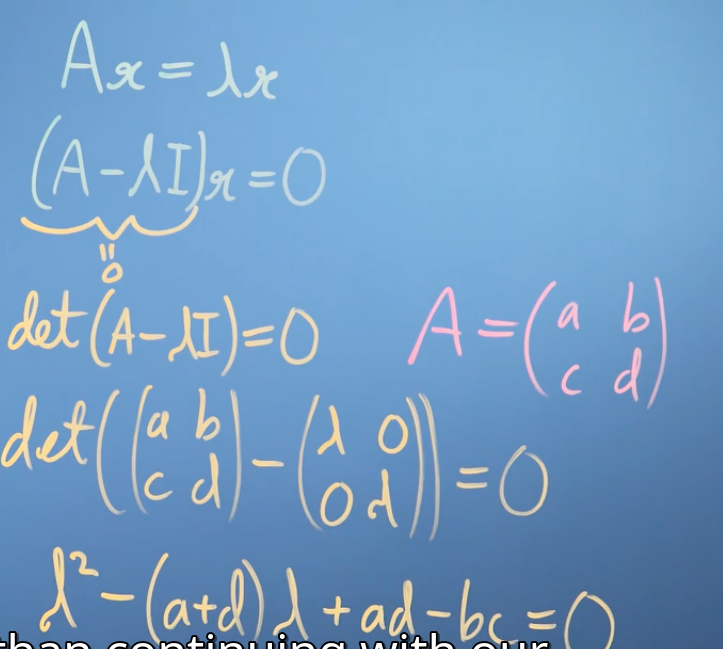 Ax = λx
(A-λI)x = 0
=
0
det(A-λI)=0
A = (a b
c d)
det((a b
c d) - (λ 0
0 λ)) = 0
λ² - (a+d)λ + ad - bc = 0
than continuing with our